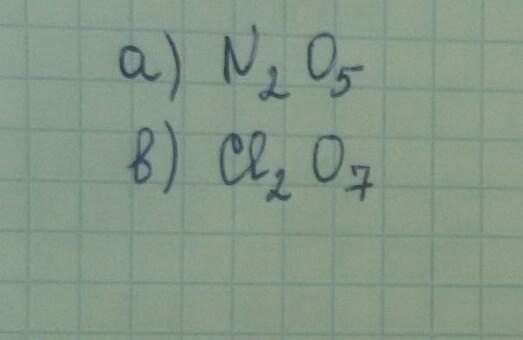 а) N₂O₅
в) Cl₂O₇